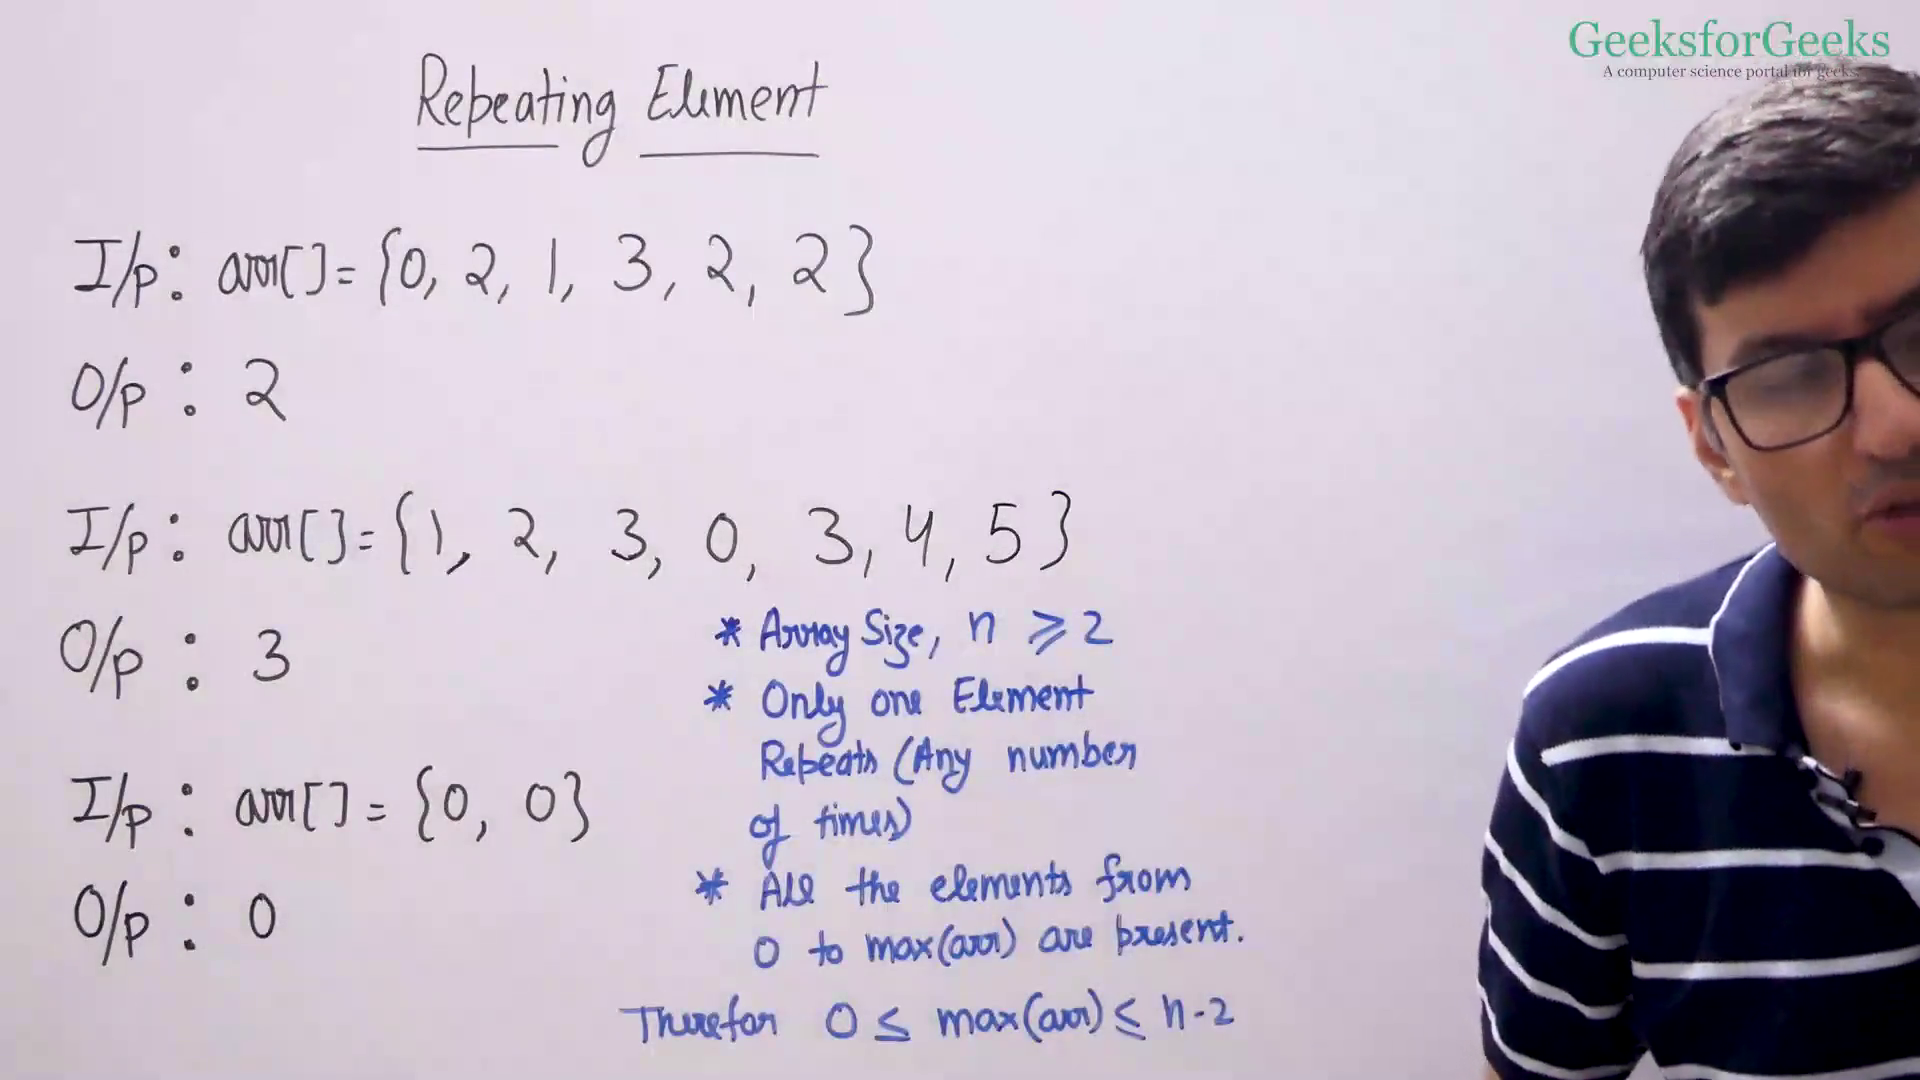 GeeksforGeeks
A computer science portal for geeks
Repeating Element
I/p: arr[]= {0, 2, 1, 3, 2, 2}
O/p : 2
I/p: arr[]= {1, 2, 3, 0, 3, 4, 5}
O/p : 3
I/p : arr[] = {0, 0}
O/p : 0
* Array Size, n ⩾ 2
* Only one Element
Repeats (Any number
of times)
* All the elements from
0 to max(arr) are present.
Therefor 0 ≤ max(arr) ≤ n-2